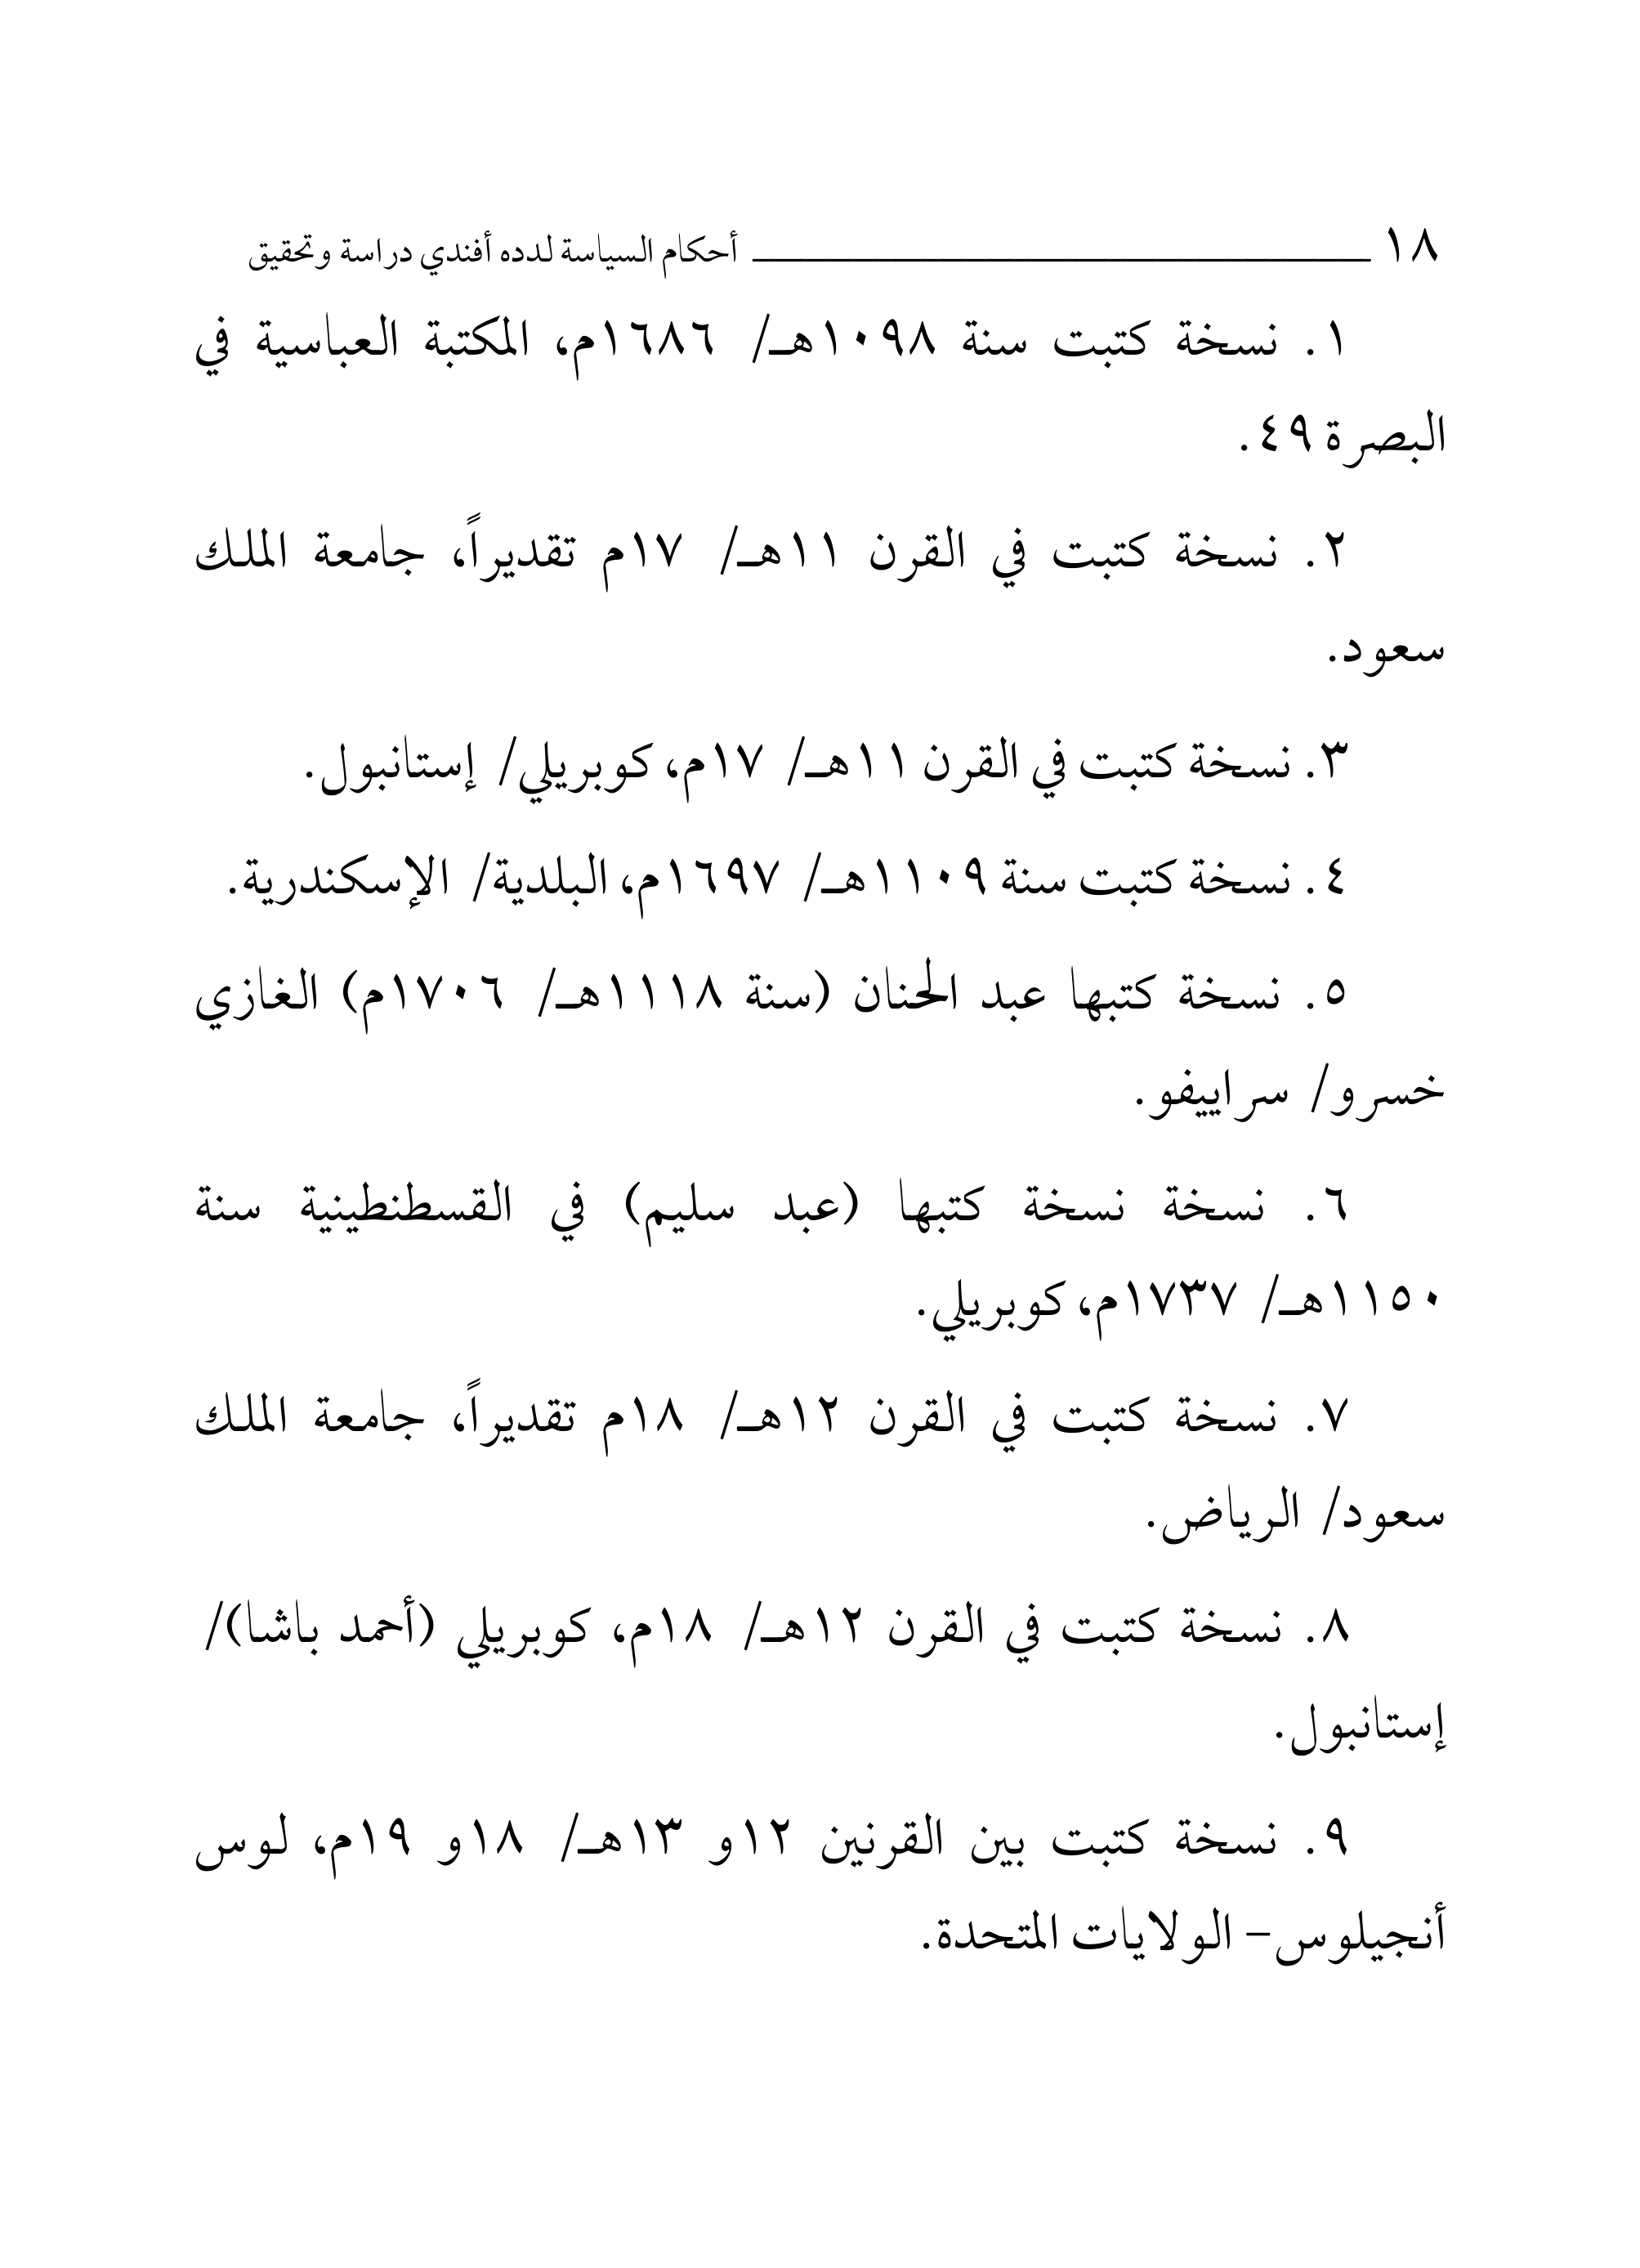 ١٨ ـــــــــــــــــــــــــــــــــــــــــــ أحكام السياسة لدده أفندي دراسة وتحقيق
١. نسخة كتبت سنة ١٠٩٨هـ/ ١٦٨٦م، المكتبة العباسية في
البصرة ٤٩.
٢. نسخة كتبت في القرن ١١هـ/ ١٧م تقديراً، جامعة الملك
سعود.
٣. نسخة كتبت في القرن ١١هـ/ ١٧م، كوبريلي/ إستانبول.
٤. نسخة كتبت سنة ١١٠٩هـ/ ١٦٩٧م، البلدية/ الإسكندرية.
٥. نسخة كتبها عبد الحنان (سنة ١١١٨هـ/ ١٧٠٦م) الغازي
خسرو/ سراييفو.
٦. نسخة نسخة كتبها (عبد سليم) في القسطنطينية سنة
١١٥٠هـ/ ١٧٣٧م، كوبريلي.
٧. نسخة كتبت في القرن ١٢هـ/ ١٨م تقديراً، جامعة الملك
سعود/ الرياض.
٨. نسخة كتبت في القرن ١٢هـ/ ١٨م، كوبريلي (أحمد باشا)/
إستانبول.
٩. نسخة كتبت بين القرنين ١٢و ١٣هـ/ ١٨و ١٩م، لوس
أنجيلوس- الولايات المتحدة.